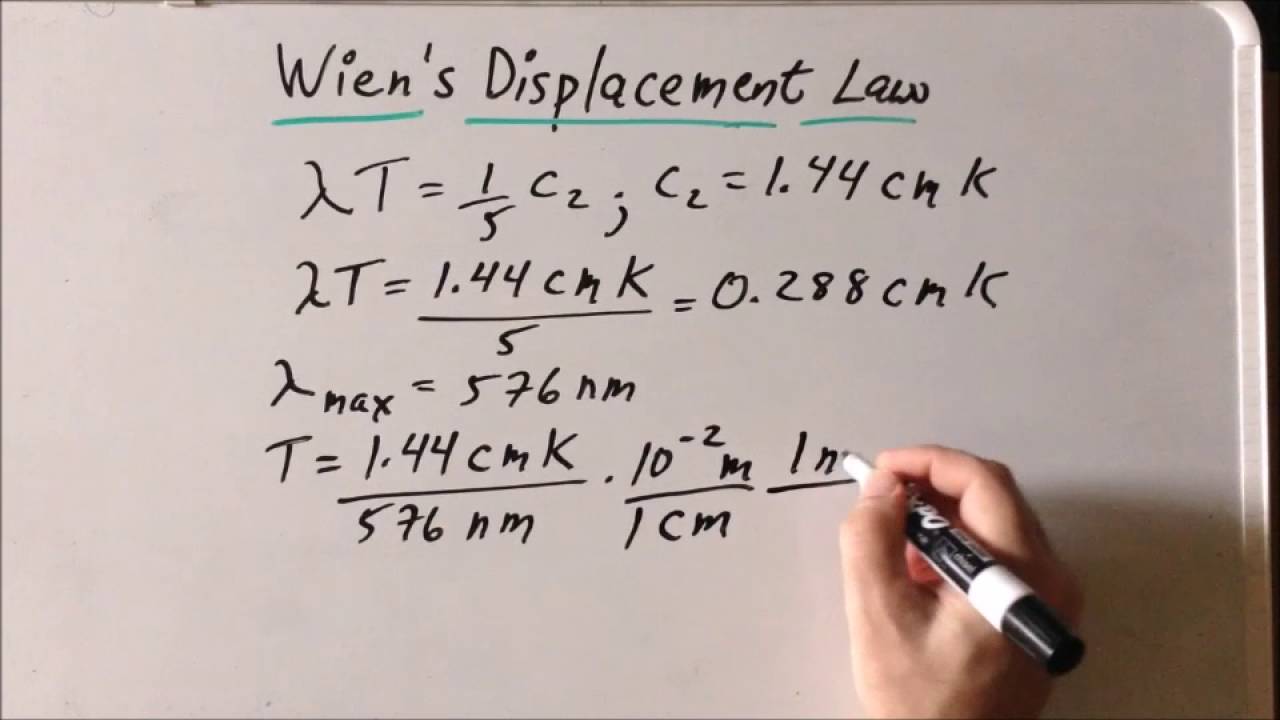 Wien's Displacement Law
λT = 1/5 C₂ ; C₂ = 1.44 cm K
λT = 1.44 cm K / 5 = 0.288 cm K
λmax = 576 nm
T = 1.44 cm K / 576 nm · 10⁻² m / 1 cm 1 n